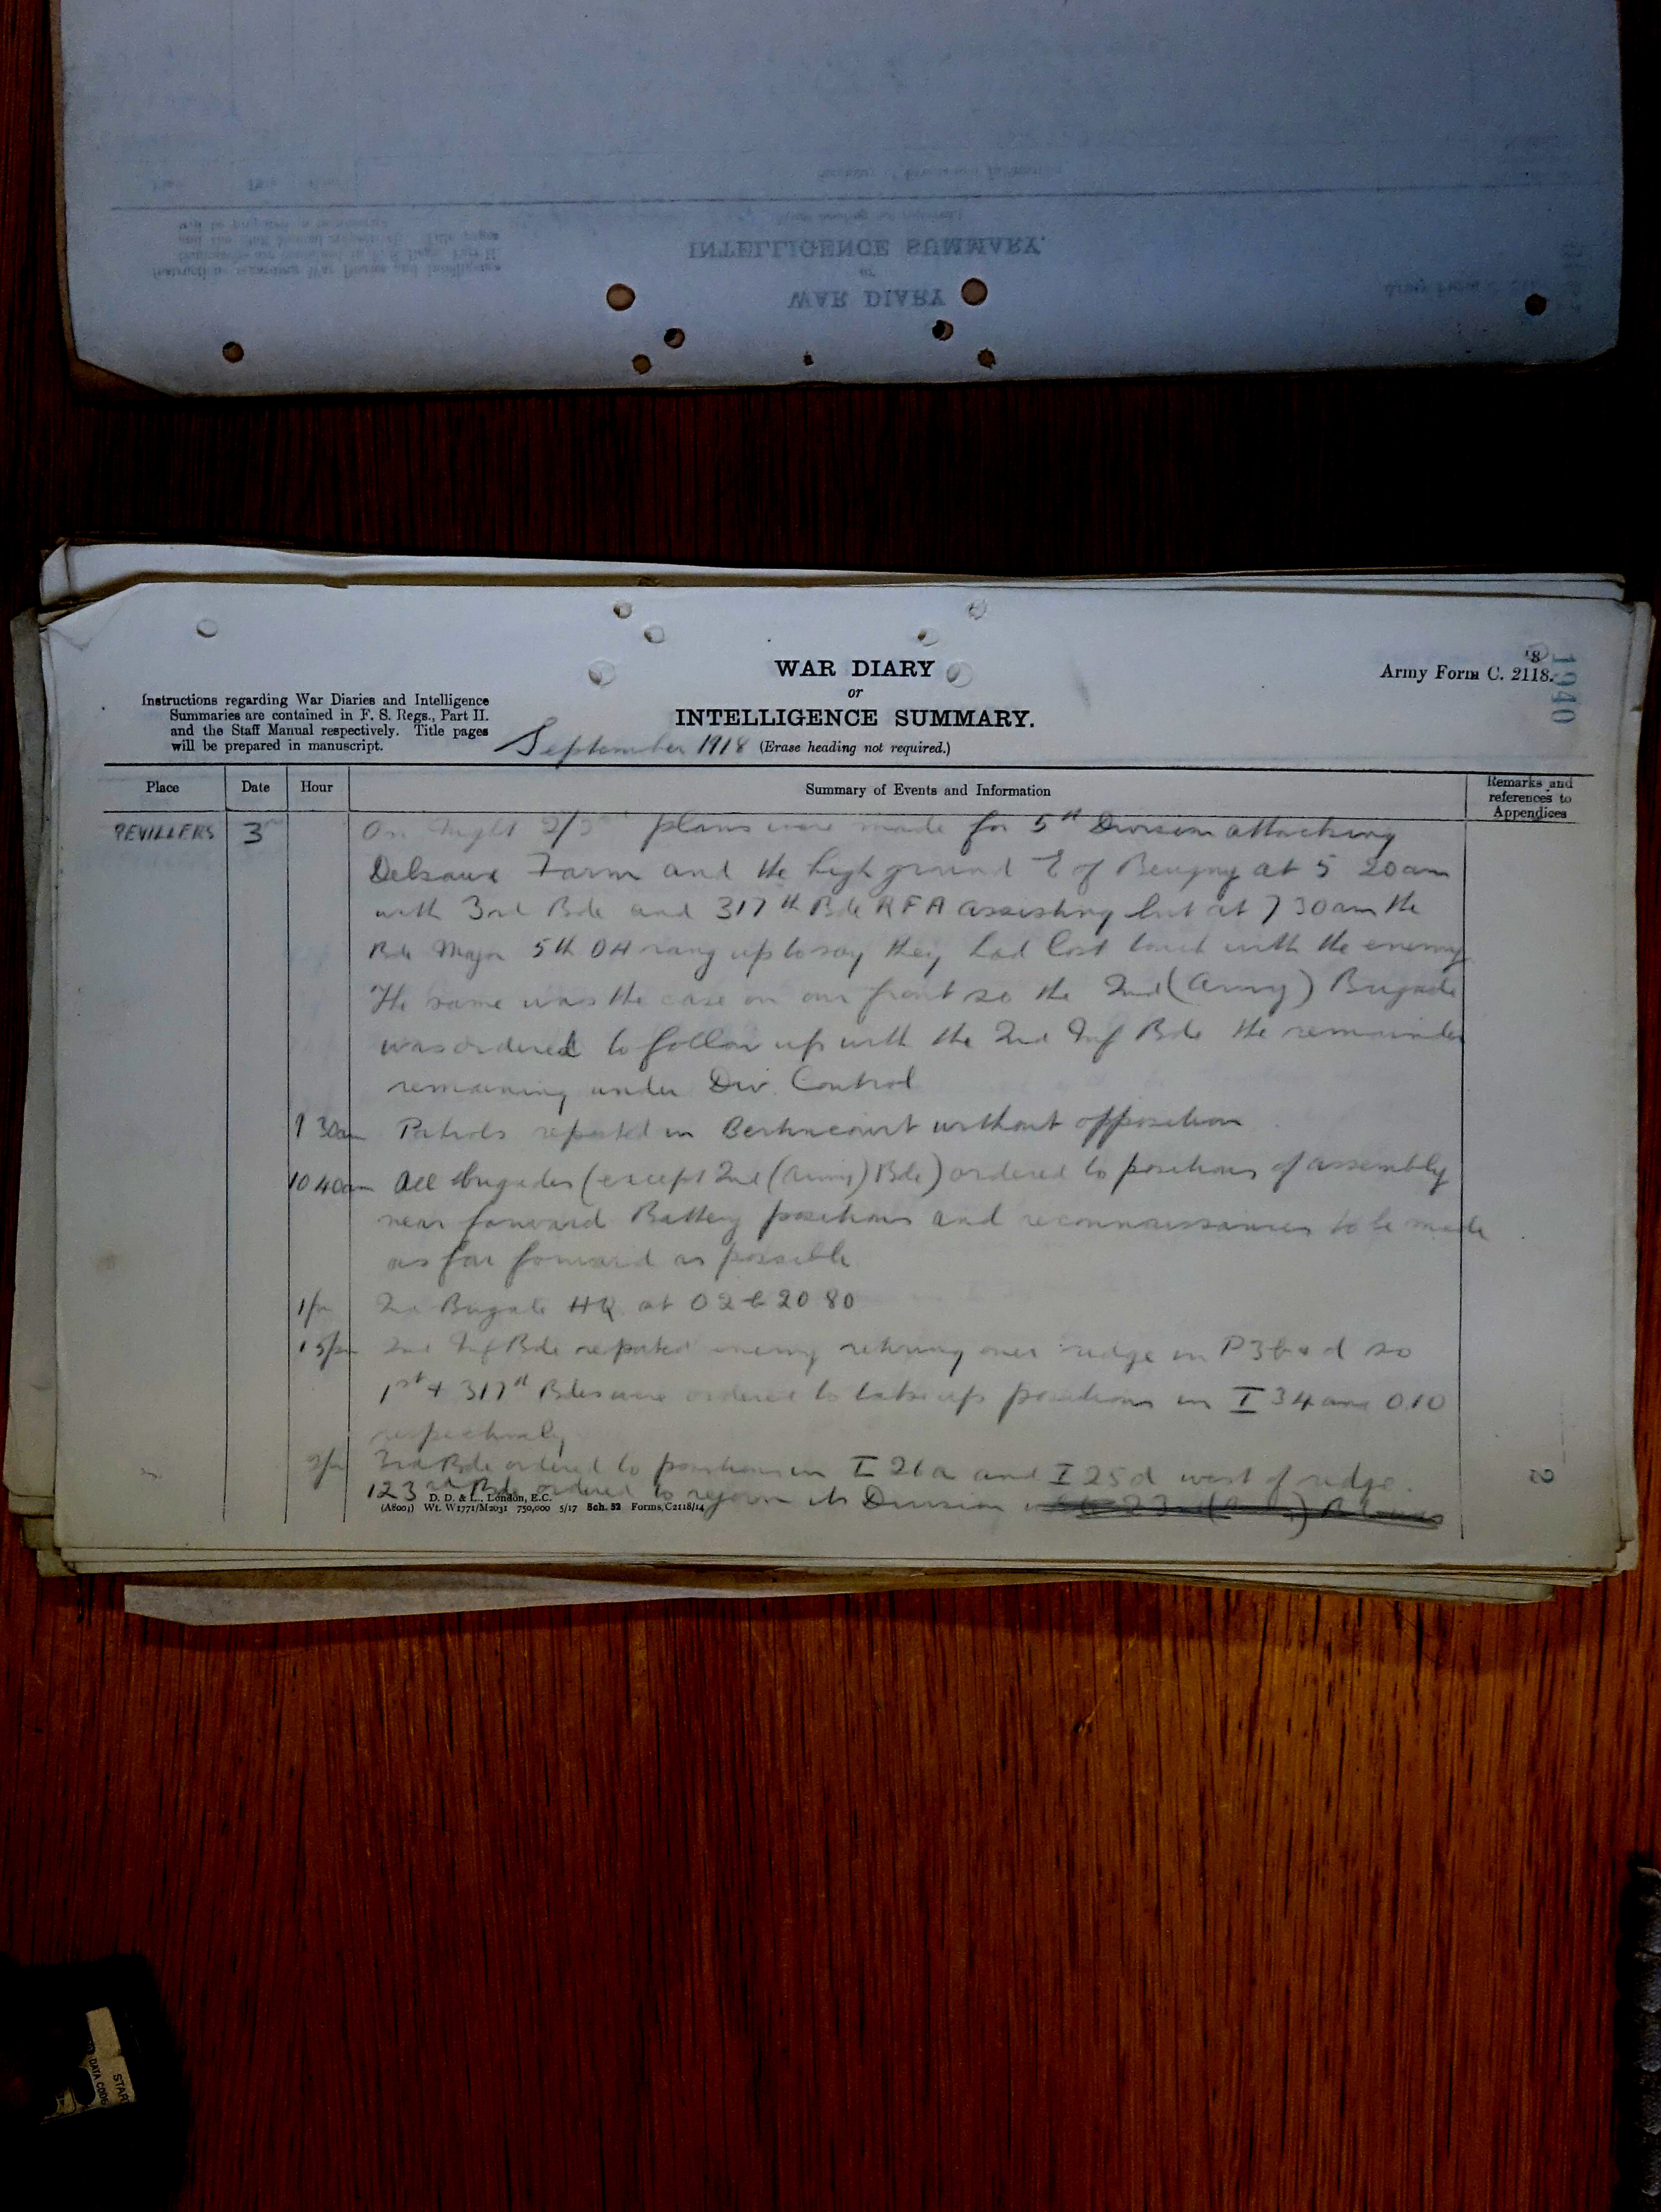 WAR DIARY
or
INTELLIGENCE SUMMARY.
(Erase heading not required.)
Army Form C. 2118.
18
1940
Instructions regarding War Diaries and Intelligence
Summaries are contained in F. S. Regs., Part II.
and the Staff Manual respectively. Title pages
will be prepared in manuscript.
September 1918
Place Date Hour Summary of Events and Information Remarks and references to Appendices
BEVILLERS 3rd On Night 2/3rd plans were made for 5th Division attacking
Delsaux Farm and the high ground E of Beugny at 5 20am
with 3rd Bde and 317th Bde RFA assisting but at 7 30am the
Bde Major 5th DA rang up to say they had lost touch with the enemy
The same was the case on our front so the 2nd (Army) Brigade
was ordered to follow up with the 2nd Inf Bde the remainder
remaining under Div. Control
9 30am Patrols reported in Bertincourt without opposition
10 40am All Brigades (except 2nd (Army) Bde) ordered to positions of assembly
near forward Battery positions and reconnaissances to be made
as far forward as possible
1pm 2nd Brigade HQ at O2b 20 80
1 5pm 2nd Inf Bde reported enemy retiring over ridge in P3b+d so
1st + 317th Bdes were ordered to take up positions in I 34 and O.10
respectively
2pm 3rd Bde ordered to positions in I 26a and I 25d west of ridge.
123rd Bde ordered to rejoin its Division
D. D. & L., London, E.C.
(A8001) Wt. W1771/M2031 750,000 5/17 Sch. 52 Forms/C2118/14
2
INTELLIGENCE SUMMARY.
or
WAR DIARY
DATA CODE
START